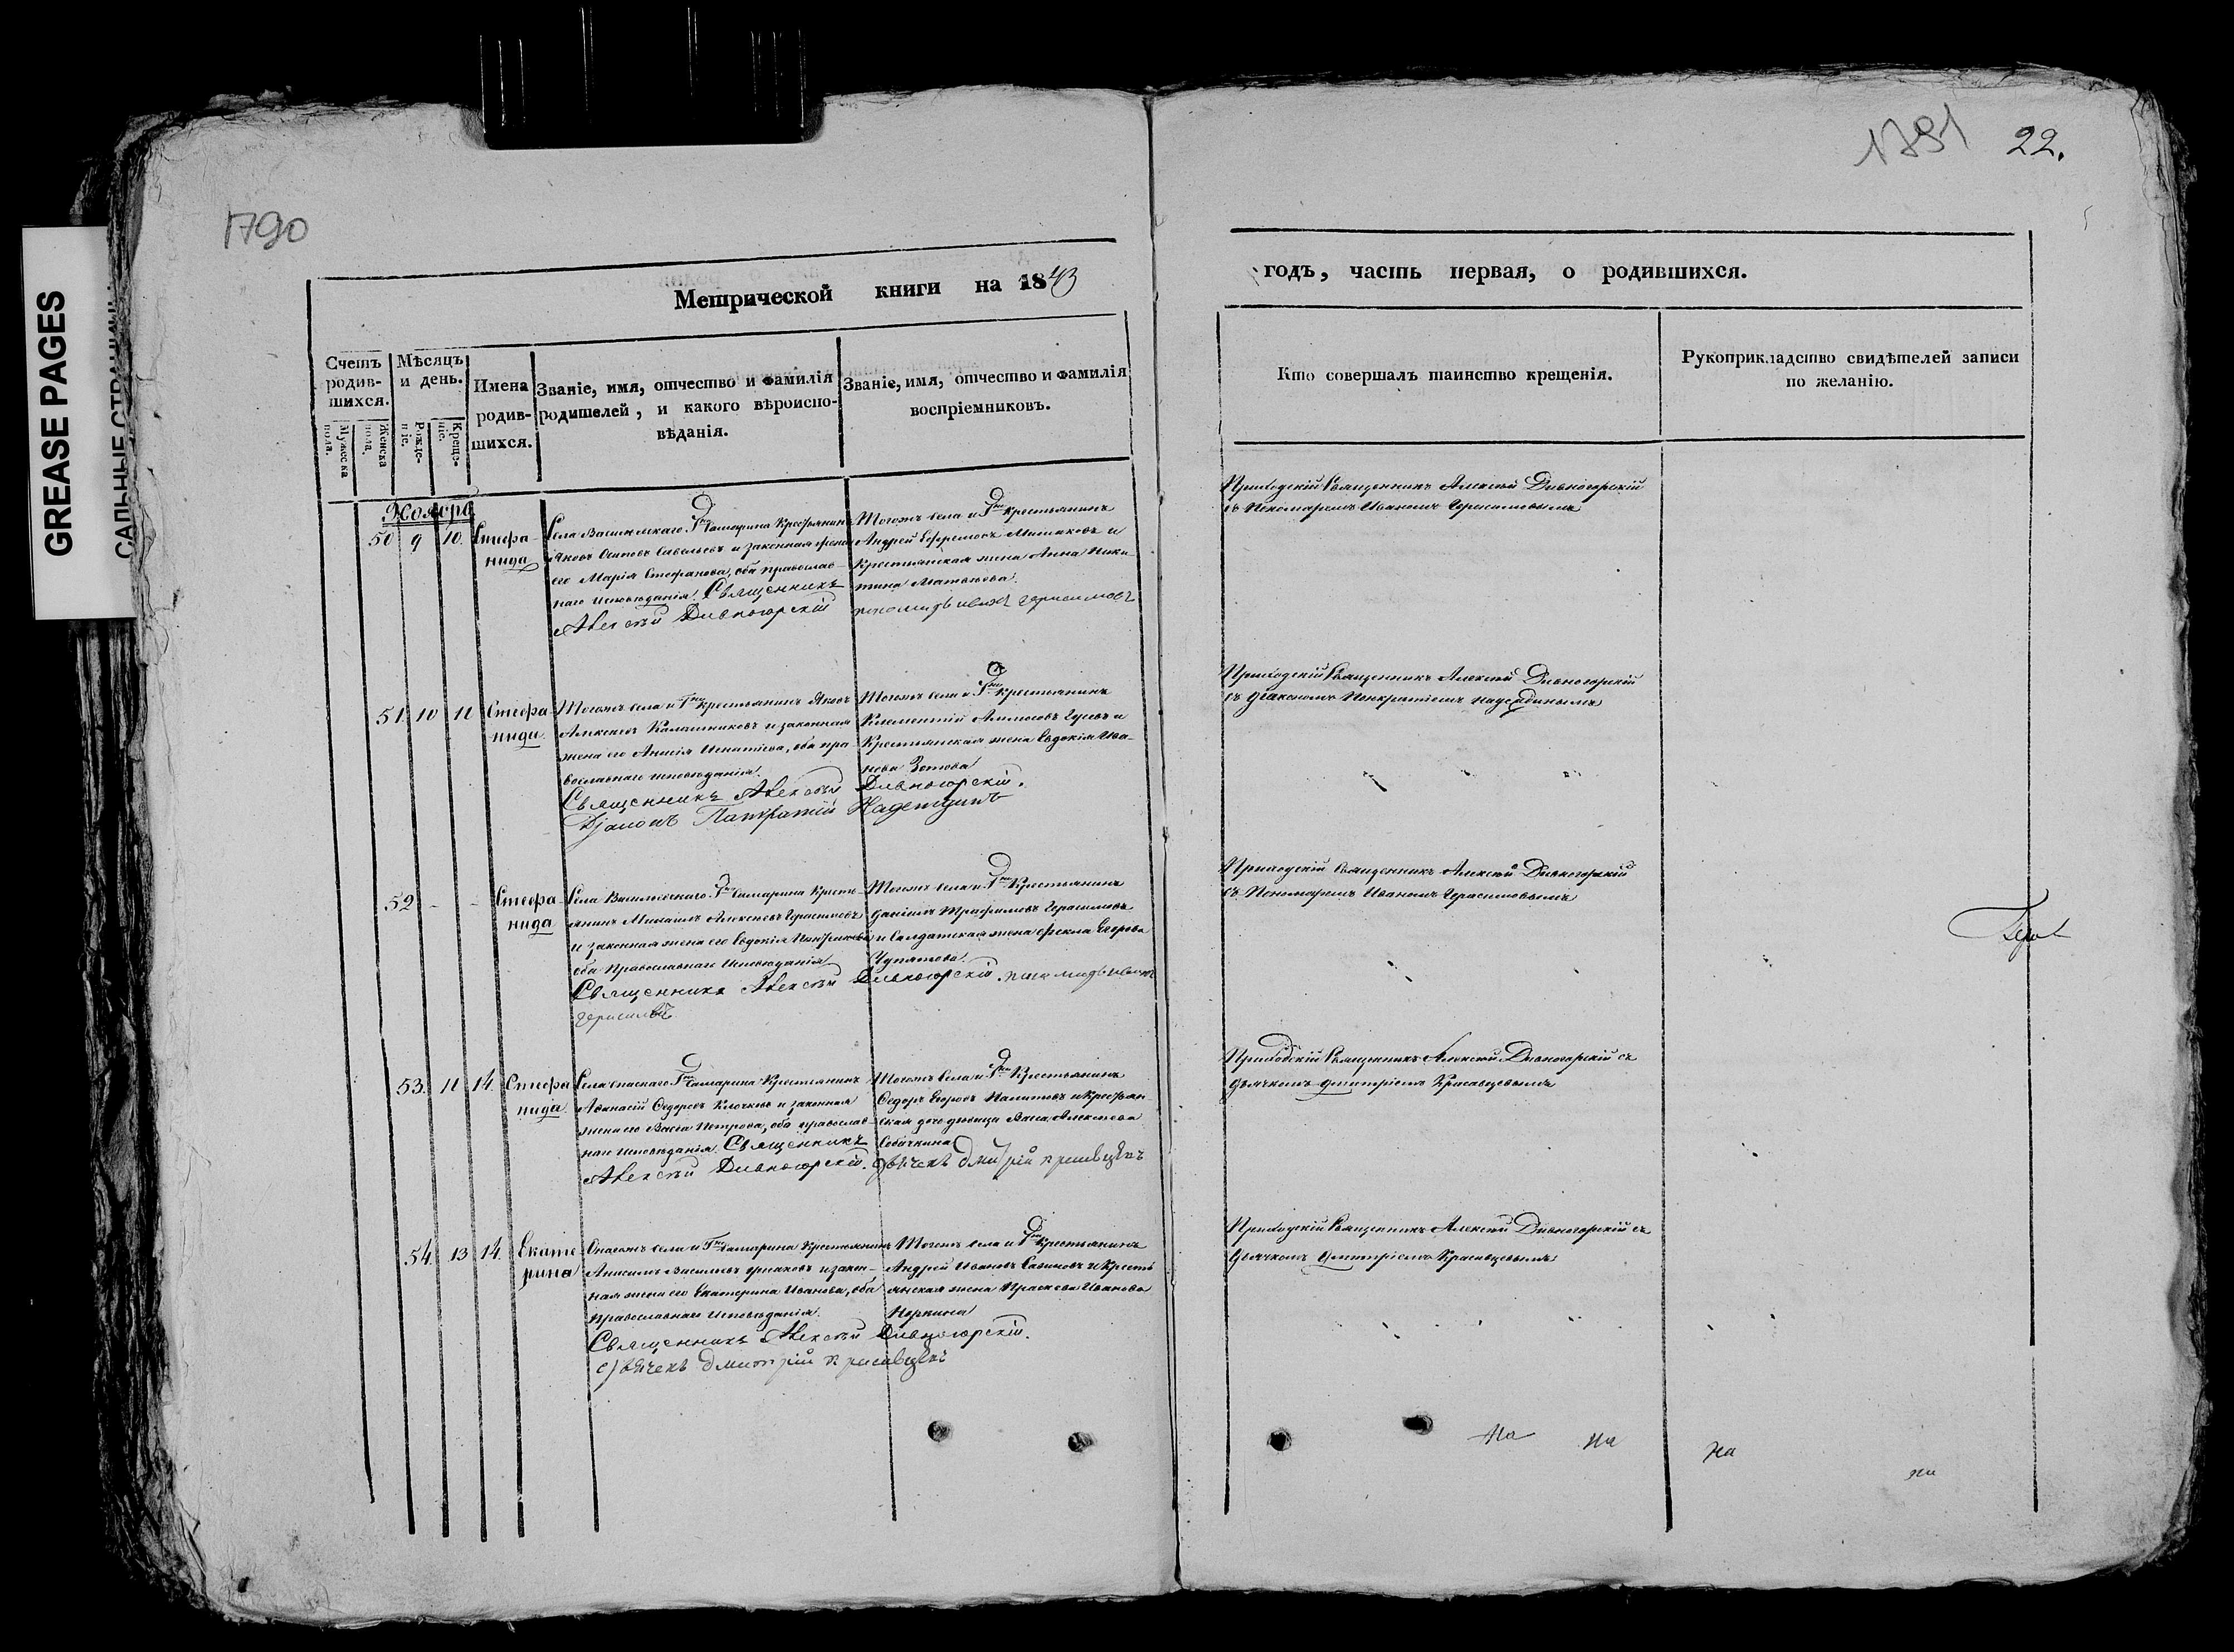 GREASE PAGES
1790
1791 22.
Метрической книги на 1843
годъ, часть первая, о родившихся.
Счетъ родив-шихся.
Мужеска пола.
Женска пола.
Мѣсяцъ и день.
Рожде-ніе.
Креще-ніе.
Имена родив-шихся.
Званіе, имя, отчество и фамилія
родителей, и какого вѣроиспо-
вѣданія.
Званіе, имя, отчество и фамилія
воспріемниковъ.
Кто совершалъ таинство крещенія.
Рукоприкладство свидѣтелей записи
по желанію.
Ноябрь
50 9 10. Стефа-
нида
Села Васильевскаго Гна Самарина Крестьянинъ
Яковъ Савельевъ и законная жена
его Марія Стефанова, оба православ-
наго исповѣданія. Священникъ
Алексѣй Дивногорскій
Тогожъ села и Гна крестьянинъ
Андрей Ефремовъ и
крестьянская жена Анна Ники-
тина Матвѣева.
пономарь иванъ герасимовъ
Приходскій Священникъ Алексѣй Дивногорскій
съ Пономаремъ Иваномъ Герасимовымъ
51. 10 11 Стефа-
нида
Тогожъ села и Гна крестьянинъ Яковъ
Алексѣевъ Калашниковъ и законная
жена его Анисія Игнатіева, оба пра-
вославнаго исповѣданія.
Священникъ Алексѣй Дивногорскій.
Діаконъ Панкратій Надеждинъ
Тогожъ села и Гна крестьянинъ
Климентій Гусевъ и
Крестьянская жена Евдокія Ива-
нова Зотова
Приходскій Священникъ Алексѣй Дивногорскій
съ Діакономъ Панкратіемъ Надеждинымъ
52 - - Стефа-
нида
Села Васильевскаго Гна Самарина Кресть-
янинъ Михаилъ Алексѣевъ Герасимовъ
и законная жена его Евдокія
оба Православнаго Исповѣданія
Священникъ Алексѣй Дивногорскій. пономарь иванъ
герасимовъ
Тогожъ села и Гна Крестьянинъ
Даніилъ Трофимовъ Герасимовъ
и Салдатская жена Фекла Егорова
Приходскій Священникъ Алексѣй Дивногорскій
съ Пономаремъ Иваномъ Герасимовымъ
53. 11 14. Стефа
нида.
Села Спаскаго Гна Самарина Крестьянинъ
Аѳанасій Ѳедоровъ Клочковъ и законная
жена его Васса Петрова, оба православ-
наго исповѣданія. Священникъ
Алексѣй Дивногорскій.
Тогожъ села и Гна Крестьянинъ
Ѳедоръ Егоровъ и Крестьян-
ская дочь дѣвица Алексѣева
Собачкина
дьячекъ Дмитрій Красавцевъ
Приходскій Священникъ Алексѣй Дивногорскій съ
дьячкомъ Дмитріемъ Красавцевымъ
54. 13 14. Екате
рина
Онагожъ села и Гна Самарина Крестьянинъ
Анисимъ Васильевъ и закон-
ная жена его Екатерина Иванова, оба
православнаго исповѣданія.
Священникъ Алексѣй Дивногорскій.
дьячекъ Дмитрій Красавцевъ
Тогожъ села и Гна Крестьянинъ
Андрей Ивановъ и Кресть
янская жена Праскева Иванова
Норкина
Приходскій Священникъ Алексѣй Дивногорскій съ
Дьячкомъ Дмитріемъ Красавцевымъ
На на на на